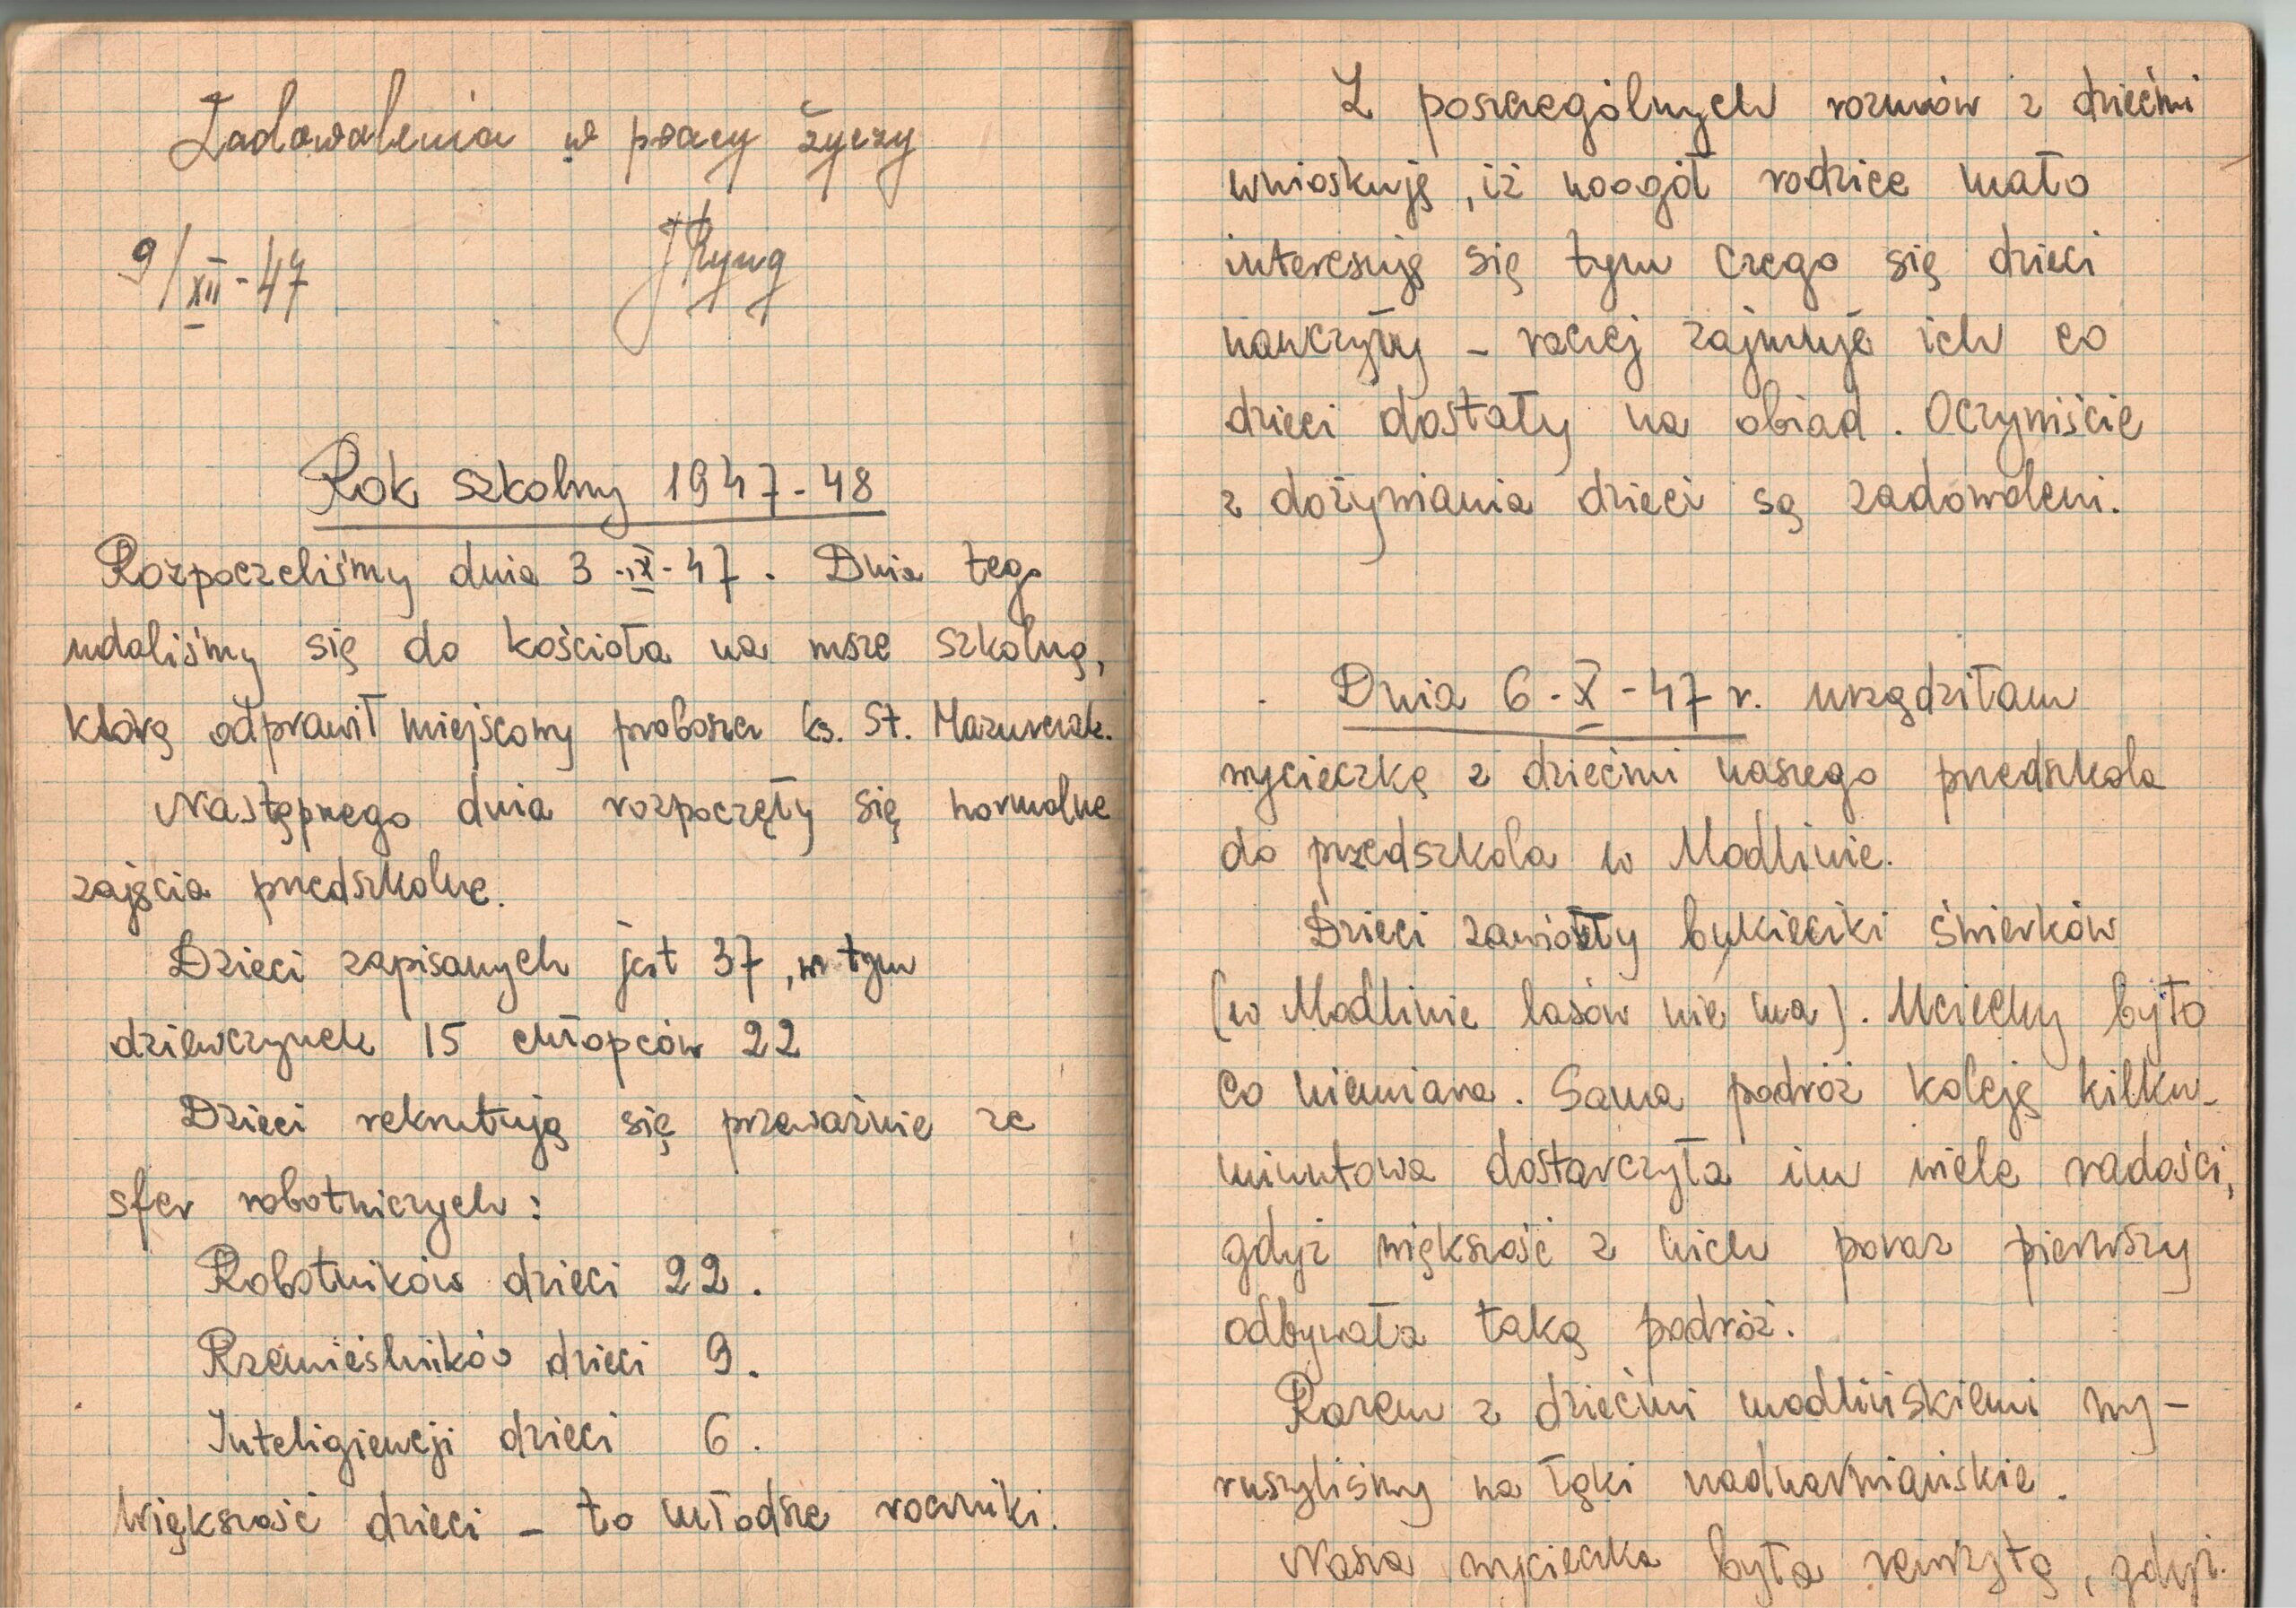 Zadowolenia w pracy życzy
9/XII-47 JRyng
Rok szkolny 1947-48
Rozpoczeliśmy dnia 3-IX-47. Dnia tego
udaliśmy się do kościoła na msze szkolną,
którą odprawił miejscowy proboszcz ks. St. Mazurczak.
Następnego dnia rozpoczęły się normalne
zajęcia przedszkolne.
Dzieci zapisanych jest 37, w tym
dziewczynek 15 chłopców 22
Dzieci rekrutują się przeważnie ze
sfer robotniczych:
Robotników dzieci 22.
Rzemieślników dzieci 9.
Inteligiencji dzieci 6.
Większość dzieci - to młodsze roczniki.
Z poszczególnych rozmów z dziećmi
wnioskuję, iż naogół rodzice mało
interesują się tym czego się dzieci
nauczyły - raczej zajmuje ich co
dzieci dostały na obiad. Oczywiście
z dożywiania dzieci są zadowoleni.
Dnia 6-X-47 r. urządziłam
wycieczkę z dziećmi naszego przedszkola
do przedszkola w Modlinie.
Dzieci zawiozły bukieciki świerków
(w Modlinie lasów nie ma). Uciechy było
co niemiara. Sama podróż koleją kilku-
minutowa dostarczyła im wiele radości,
gdyż większość z nich poraz pierwszy
odbywała taką podróż.
Razem z dziećmi modlińskiemi wy-
ruszyliśmy na łąki nadnarwiańskie.
Nasza wycieczka była rewizytą, gdyż